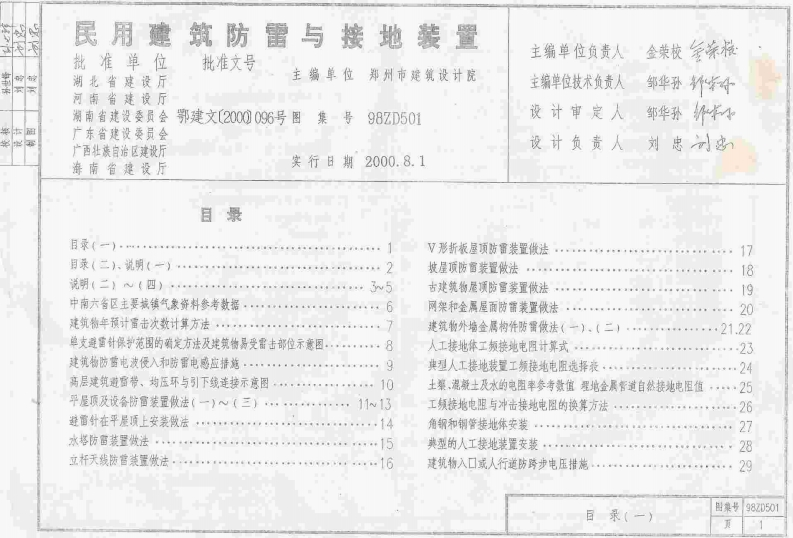 民用建筑防雷与接地装置
批准单位 批准文号
湖北省建设厅
河南省建设厅
湖南省建设委员会
广东省建设委员会
广西壮族自治区建设厅
海南省建设厅
鄂建文(2000)096号
主编单位 郑州市建筑设计院
图集号 98ZD501
实行日期 2000.8.1
主编单位负责人 金荣校
主编单位技术负责人 邹华孙
设计审定人 邹华孙
设计负责人 刘忠
校核
设计 刘忠
制图 刘忠
目录
目录(一) 1
目录(二)、说明(一) 2
说明(二)~(四) 3~5
中南六省区主要城镇气象资料参考数据 6
建筑物年预计雷击次数计算方法 7
单支避雷针保护范围的确定方法及建筑物易受雷击部位示意图 8
建筑物防雷电波侵入和防雷电感应措施 9
高层建筑避雷带、均压环与引下线连接示意图 10
平屋顶及设备防雷装置做法(一)~(三) 11~13
避雷针在平屋顶上安装做法 14
水塔防雷装置做法 15
立杆天线防雷装置做法 16
V形折板屋顶防雷装置做法 17
坡屋顶防雷装置做法 18
古建筑物屋顶防雷装置做法 19
网架和金属屋面防雷装置做法 20
建筑物外墙金属构件防雷做法(一)、(二) 21.22
人工接地体工频接地电阻计算式 23
典型人工接地装置工频接地电阻选择表 24
土壤、混凝土及水的电阻率参考数值 埋地金属管道自然接地电阻值 25
工频接地电阻与冲击接地电阻的换算方法 26
角钢和钢管接地体安装 27
典型的人工接地装置安装 28
建筑物入口或人行道防跨步电压措施 29
目录(一)
图集号 98ZD501
页 1